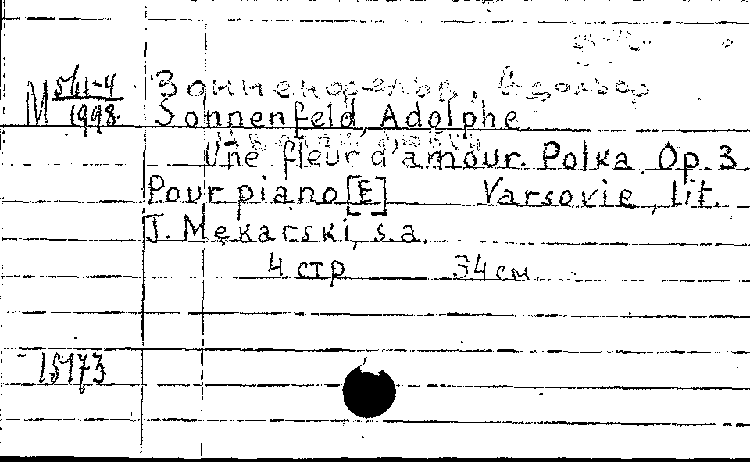 М 561-4
1998
Зонненфельд, Адольф
Sonnenfeld, Adolphe
Une fleur d'amour. Polka. Op. 3
Pour piano [E] Varsovie, lit.
J. Mękarski, s.a.
4 стр 34 см
15173